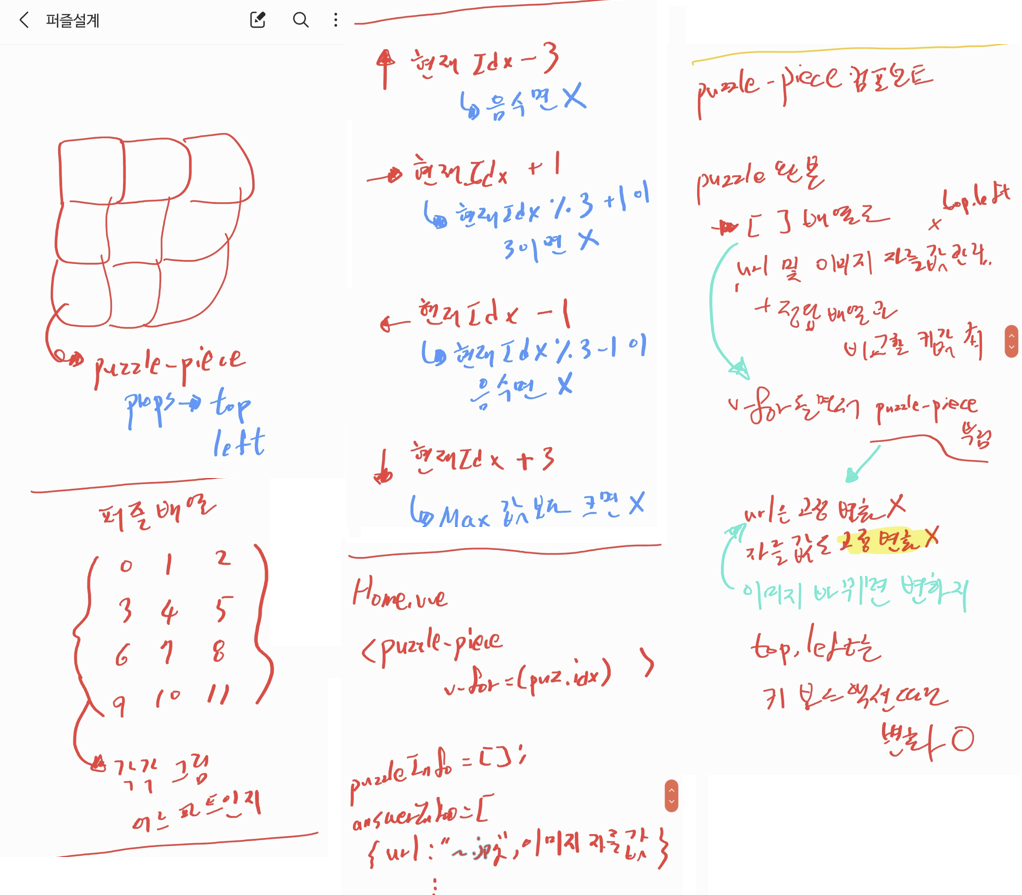 퍼즐설계
puzzle-piece
props → top
left
퍼즐배열
0 1 2
3 4 5
6 7 8
9 10 11
각각 그림
어느파트인지
↑ 현재 Idx - 3
↳ 음수면 X
→ 현재 Idx + 1
↳ 현재Idx % 3 + 1 이
3이면 X
← 현재 Idx - 1
↳ 현재Idx % 3 - 1 이
음수면 X
↓ 현재Idx + 3
↳ Max 값보다 크면 X
Home.vue
<puzzle-piece
v-for=(puz.idx) >
puzzleInfo = [];
answerInfo = [
{ url : "~.jpg", 이미지 자를값 }
⋮
puzzle-piece 컴포넌트
puzzle 판본
→ [ ] 배열로
x top.left
url 및 이미지 자를값
+ 정답 배열과
비교할 키값
v-for돌면서 puzzle-piece
뿌림
url은 고정 변화 X
자를 값도 고정 변화 X
이미지 바뀌면 변하지
top, left는
키 보드액션따라
변화 O